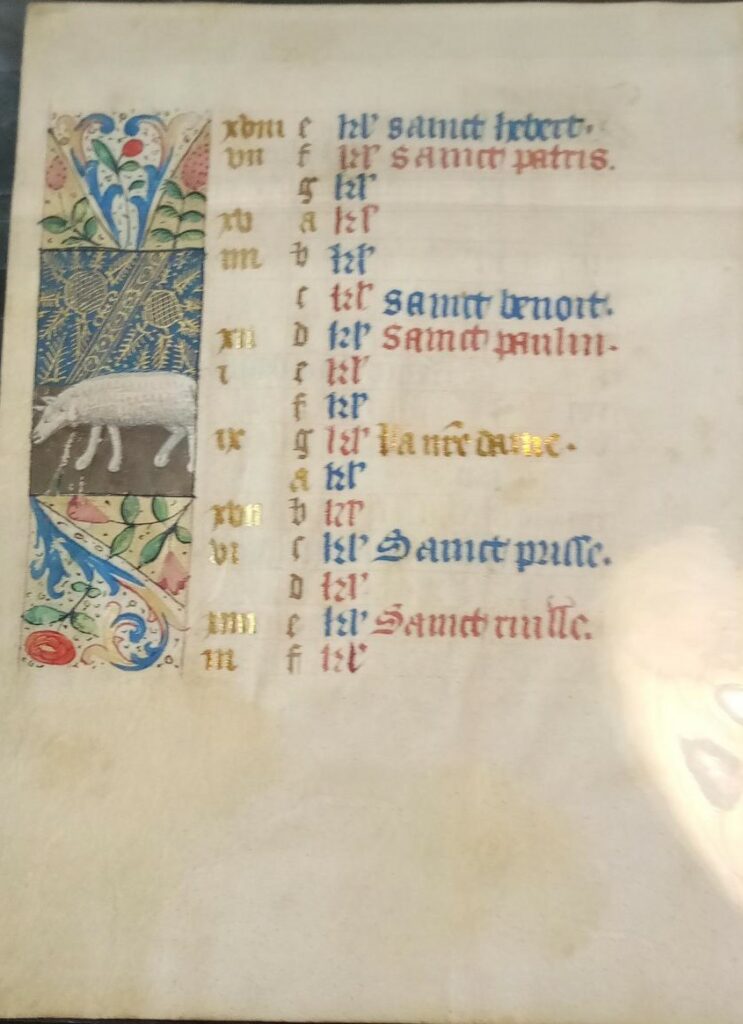 xviii e kl' sainct hebert.
vii f kl' sainct patris.
g kl'
xv a kl'
iiii b kl'
c kl' sainct benoit.
xii d kl' sainct paulin.
i e kl'
f kl'
ix g kl' La nr̃e dame.
a kl'
xvii b kl'
vi c kl' Sainct prisse.
d kl'
xiiii e kl' Sainct
iii f kl'